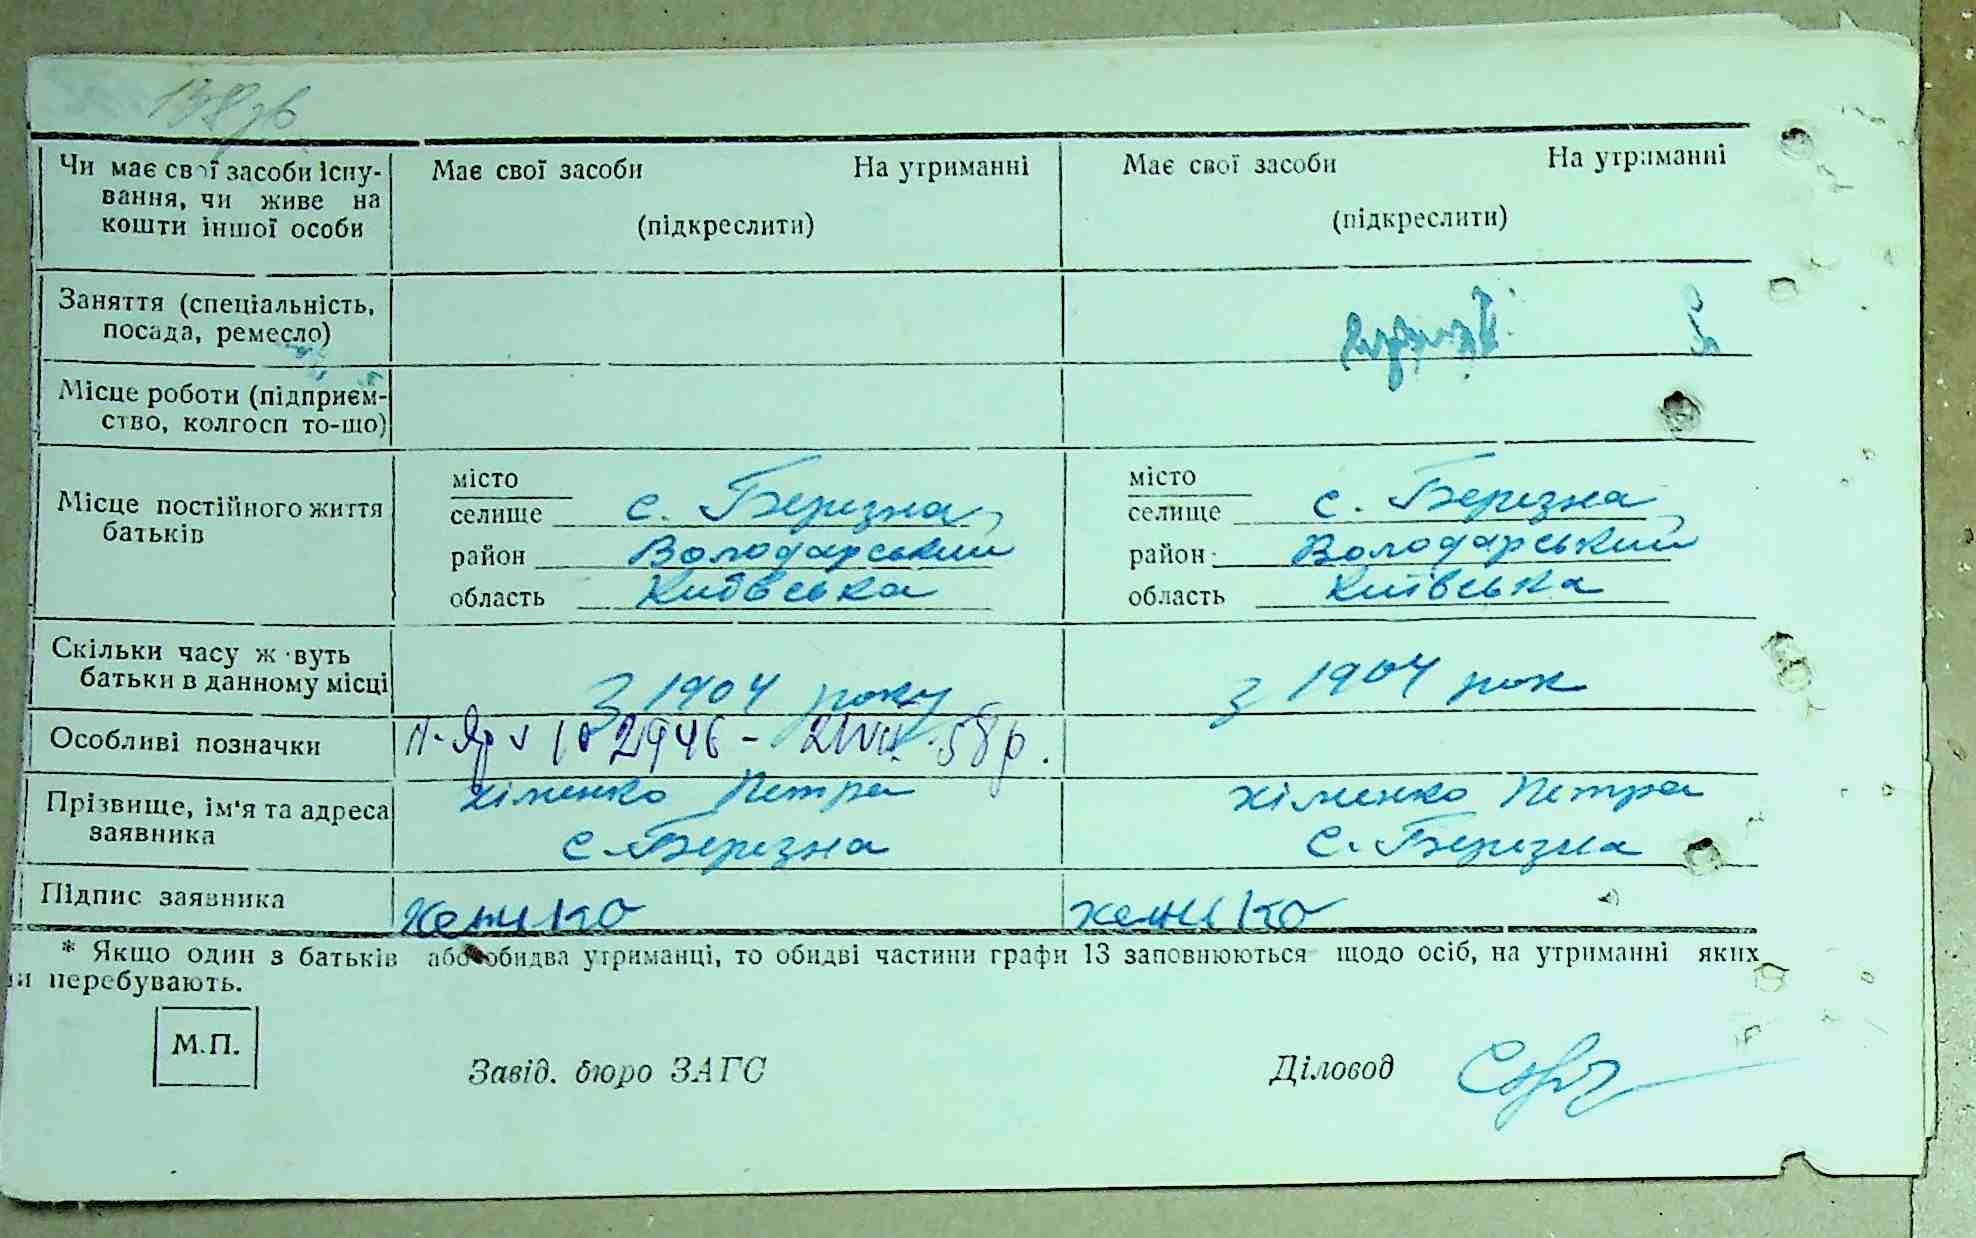 138зв
Чи має свої засоби існу- Має свої засоби На утриманні Має свої засоби На утриманні
вання, чи живе на
кошти іншої особи (підкреслити) (підкреслити)
Заняття (спеціальність,
посада, ремесло)
Місце роботи (підприєм-
ство, колгосп то-що)
місто місто
Місце постійного життя селище с. Березна селище с. Березна
батьків район Володарський район Володарський
область Київська область Київська
Скільки часу ж вуть
батьки в данному місці з 1904 року з 1904 рок
Особливі позначки 102946 - 58 р.
Прізвище, ім'я та адреса Хіменко Петра Хіменко Петра
заявника с. Березна с. Березна
Підпис заявника
* Якщо один з батьків або обидва утриманці, то обидві частини графи 13 заповнюються щодо осіб, на утриманні яких
и перебувають.
М.П.
Завід. бюро ЗАГС Діловод